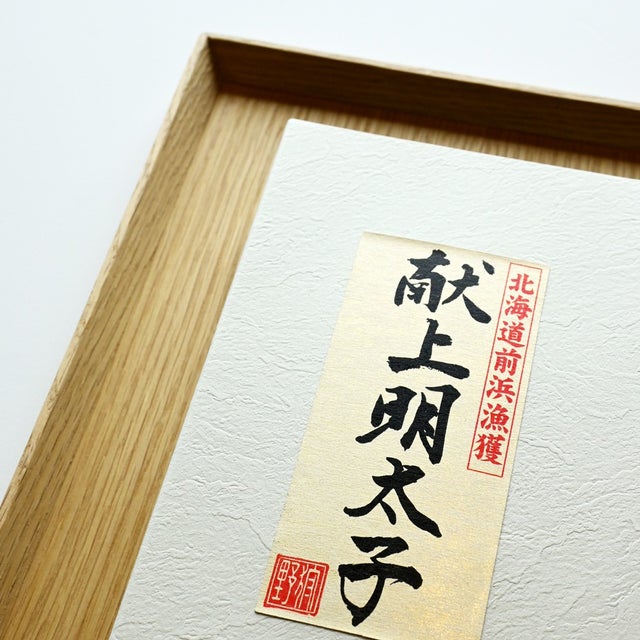 北海道前浜漁獲
献上明太子